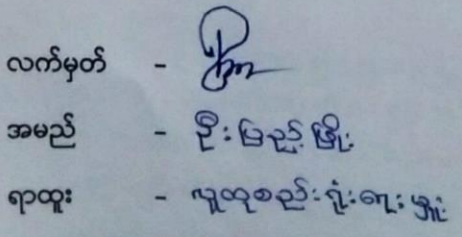 လက်မှတ် -
အမည် - ဦးပြည့်ဖြိုး
ရာထူး - လူထုစည်းရုံးရေးမှူး